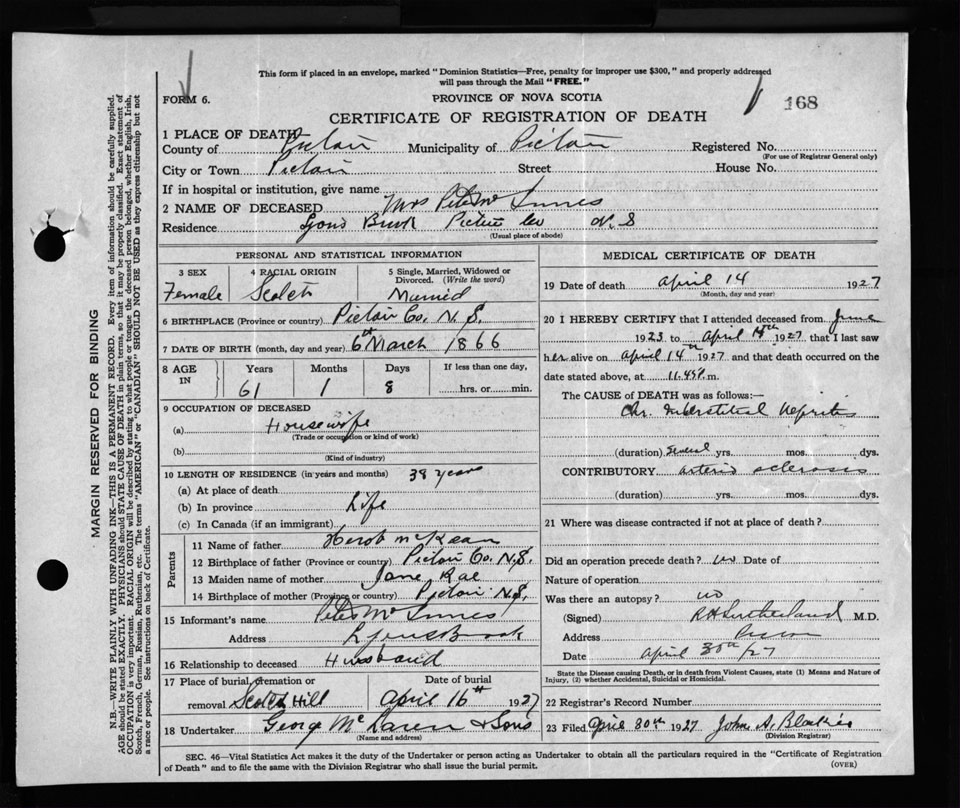 This form if placed in an envelope, marked "Dominion Statistics—Free, penalty for improper use $300," and properly addressed
will pass through the Mail "FREE."
FORM 6.
PROVINCE OF NOVA SCOTIA
168
CERTIFICATE OF REGISTRATION OF DEATH
1 PLACE OF DEATH
County of Pictou Municipality of Pictou Registered No.
(For use of Registrar General only)
City or Town Pictou Street House No.
If in hospital or institution, give name
2 NAME OF DECEASED Mrs Peter McInnes
Residence Lyons Brook Pictou Co N.S
(Usual place of abode)
PERSONAL AND STATISTICAL INFORMATION
3 SEX 4 RACIAL ORIGIN 5 Single, Married, Widowed or Divorced. (Write the word)
Female Scotch Married
6 BIRTHPLACE (Province or country) Pictou Co. N.S.
7 DATE OF BIRTH (month, day and year) 6th March 1866
8 AGE IN Years Months Days If less than one day,
61 1 8 hrs. or min.
9 OCCUPATION OF DECEASED
(a) Housewife
(Trade or occupation or kind of work)
(b)
(Kind of industry)
10 LENGTH OF RESIDENCE (in years and months) 38 years
(a) At place of death
(b) In province Life
(c) In Canada (if an immigrant)
Parents
11 Name of father McKean
12 Birthplace of father (Province or country) Pictou Co. N.S.
13 Maiden name of mother Jane Rae
14 Birthplace of mother (Province or country) Pictou N.S.
15 Informant's name Peter McInnes
Address Lyons Brook
16 Relationship to deceased Husband
17 Place of burial, cremation or removal Scotch Hill Date of burial April 16th 1927
18 Undertaker George McLaren & Sons
(Name and address)
MEDICAL CERTIFICATE OF DEATH
19 Date of death April 14 1927
(Month, day and year)
20 I HEREBY CERTIFY that I attended deceased from June
1923 to April 14th 1927, that I last saw
her alive on April 14th 1927 and that death occurred on the
date stated above, at 11.45P m.
The CAUSE OF DEATH was as follows:—
Chr. Interstitial Nephritis
(duration) Several yrs. mos. dys.
CONTRIBUTORY arterio sclerosis
(duration) yrs. mos. dys.
21 Where was disease contracted if not at place of death?
Did an operation precede death? no Date of
Nature of operation
Was there an autopsy? no
(Signed) R H Sutherland M.D.
Address Pictou
Date April 30th /27
State the Disease causing Death, or in death from Violent Causes, state (1) Means and Nature of
Injury, (2) whether Accidental, Suicidal or Homicidal.
22 Registrar's Record Number
23 Filed April 30th 1927 John A.
(Division Registrar)
SEC. 46—Vital Statistics Act makes it the duty of the Undertaker or person acting as Undertaker to obtain all the particulars required in the "Certificate of Registration
of Death" and to file the same with the Division Registrar who shall issue the burial permit.
(OVER)
MARGIN RESERVED FOR BINDING
N.B.—WRITE PLAINLY WITH UNFADING INK—THIS IS A PERMANENT RECORD. Every item of information should be carefully supplied.
AGE should be stated EXACTLY. PHYSICIANS should STATE CAUSE OF DEATH in plain terms, so that it may be properly classified. Exact statement of
OCCUPATION is very important. RACIAL ORIGIN will be described by stating to what people or tongue the deceased person belonged, whether English, Irish,
Scotch, French, German, Russian, Ruthenian, etc. The terms "AMERICAN" or "CANADIAN" SHOULD NOT BE USED as they express citizenship but not
a race or people. See instructions on back of Certificate.